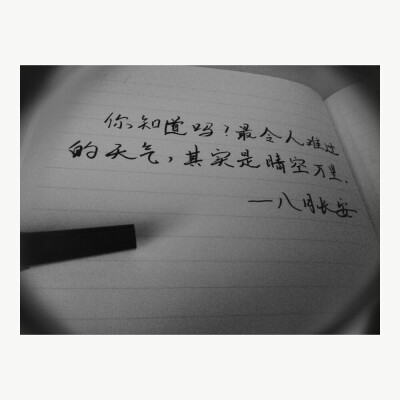 你知道吗？最令人难过
的天气，其实是晴空万里.
—八月长安